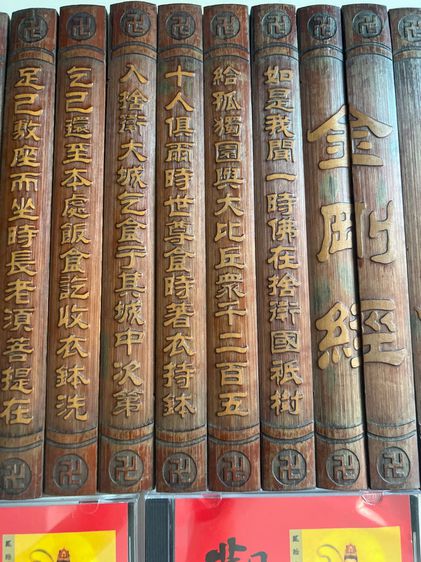 金剛經
如是我聞一時佛在捨衛國祇樹
給孤獨園與大比丘眾千二百五
十人俱爾時世尊食時著衣持鉢
入捨衛大城乞食于其城中次第
乞已還至本處飯食訖收衣鉢洗
足已敷座而坐時長老須菩提在